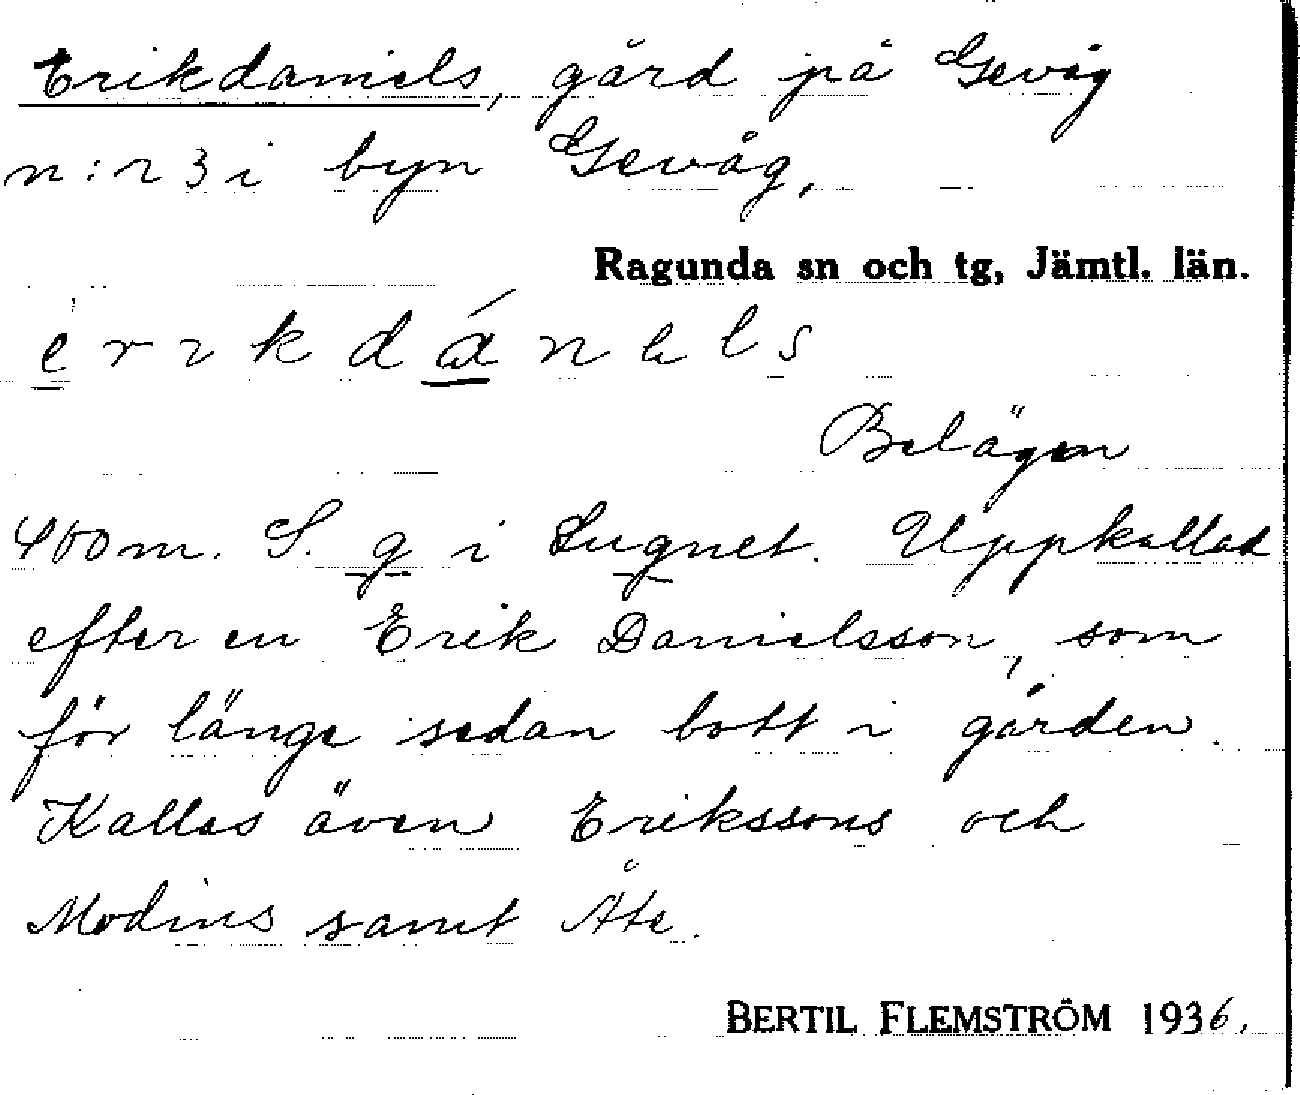 Erikdaniels, gård på Gevåg
n:r 3 i byn Gevåg,
Ragunda sn och tg, Jämtl. län.
erikdánels
Belägen
400 m. S. g i Lugnet. Uppkallad
efter en Erik Danielsson, som
för länge sedan bott i gården.
Kallas även Erikssons och
Modins samt Åte.
BERTIL FLEMSTRÖM 1936.